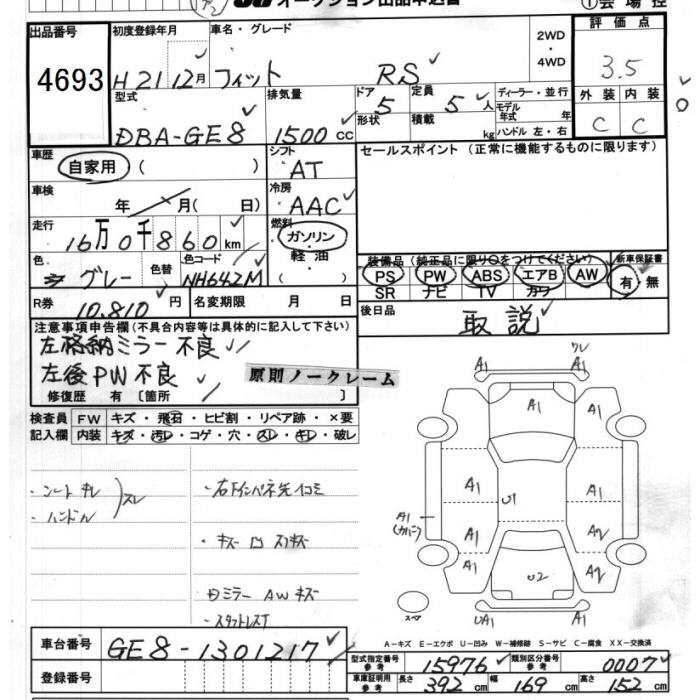 オークション出品申込書
①会場控
出品番号
4693
初度登録年月
H21 12月
車名・グレード
フィット RS
2WD
・
4WD
評価点
3.5
外装 内装
C C
型式
DBA-GE8
排気量
1500cc
ドア
5
形状
定員
5人
積載
kg
ディーラー・並行
モデル年式 年
ハンドル 左・右
車歴
自家用 ( )
シフト
AT
セールスポイント(正常に機能するものに限ります)
車検
年 月( 日)
冷房
AAC
走行
16万0千860km
燃料
ガソリン
軽油
( ・ )
色
グレー
色替
色コード
NH642M
装備品(純正品に限り○をつけてください)
PS PW ABS エアB AW
SR ナビ TV カワ
新車保証書
有・無
R券
10,810円
名変期限 月 日
後日品
取説
注意事項申告欄(不具合内容等は具体的に記入して下さい)
左格納ミラー不良
左後PW不良
修復歴 有 〔箇所 〕
原則ノークレーム
検査員記入欄
FW キズ・飛石・ヒビ割・リペア跡・×要
内装 キズ・汚レ・コゲ・穴・スレ・キレ・破レ
・シートキレ
・ハンドル
スレ
・キズ凹スリキズ
ミラー AWキズ
・スタットレスT
A1 A1
A1 A1
A1 U1 A1
A1
(カバー)
A1 A2
A1 U2 A2
UA1 A1
スペア
A-キズ E-エクボ U-凹み W-補修跡 S-サビ C-腐食 XX-交換済
車台番号
GE8-1301217
登録番号
型式指定番号
参考
15976
類別区分番号
参考
0007
車庫証明用
参考
長さ 392cm 幅 169cm 高さ 152cm